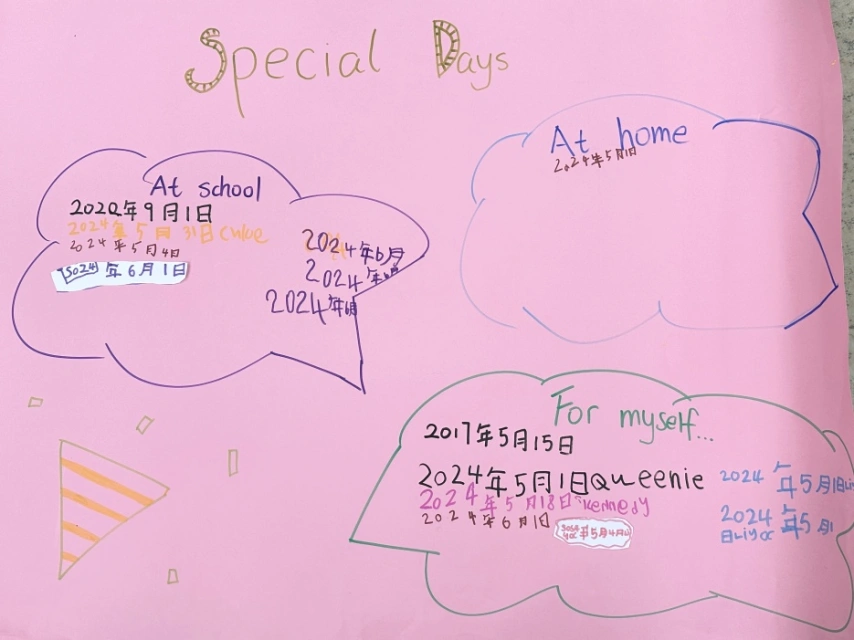 Special Days
At school
2022年9月1日
2024年5月31日Chloe
2024年5月4日
2024年6月1日
2024年6月
2024年6月
2024年6月
At home
2024年5月1日
For myself...
2017年5月15日
2024年5月1日Queenie
2024年5月18日Kennedy
2024年6月1日
年5月4日
2024年5月1日Li
2024年5月1
日Liyac